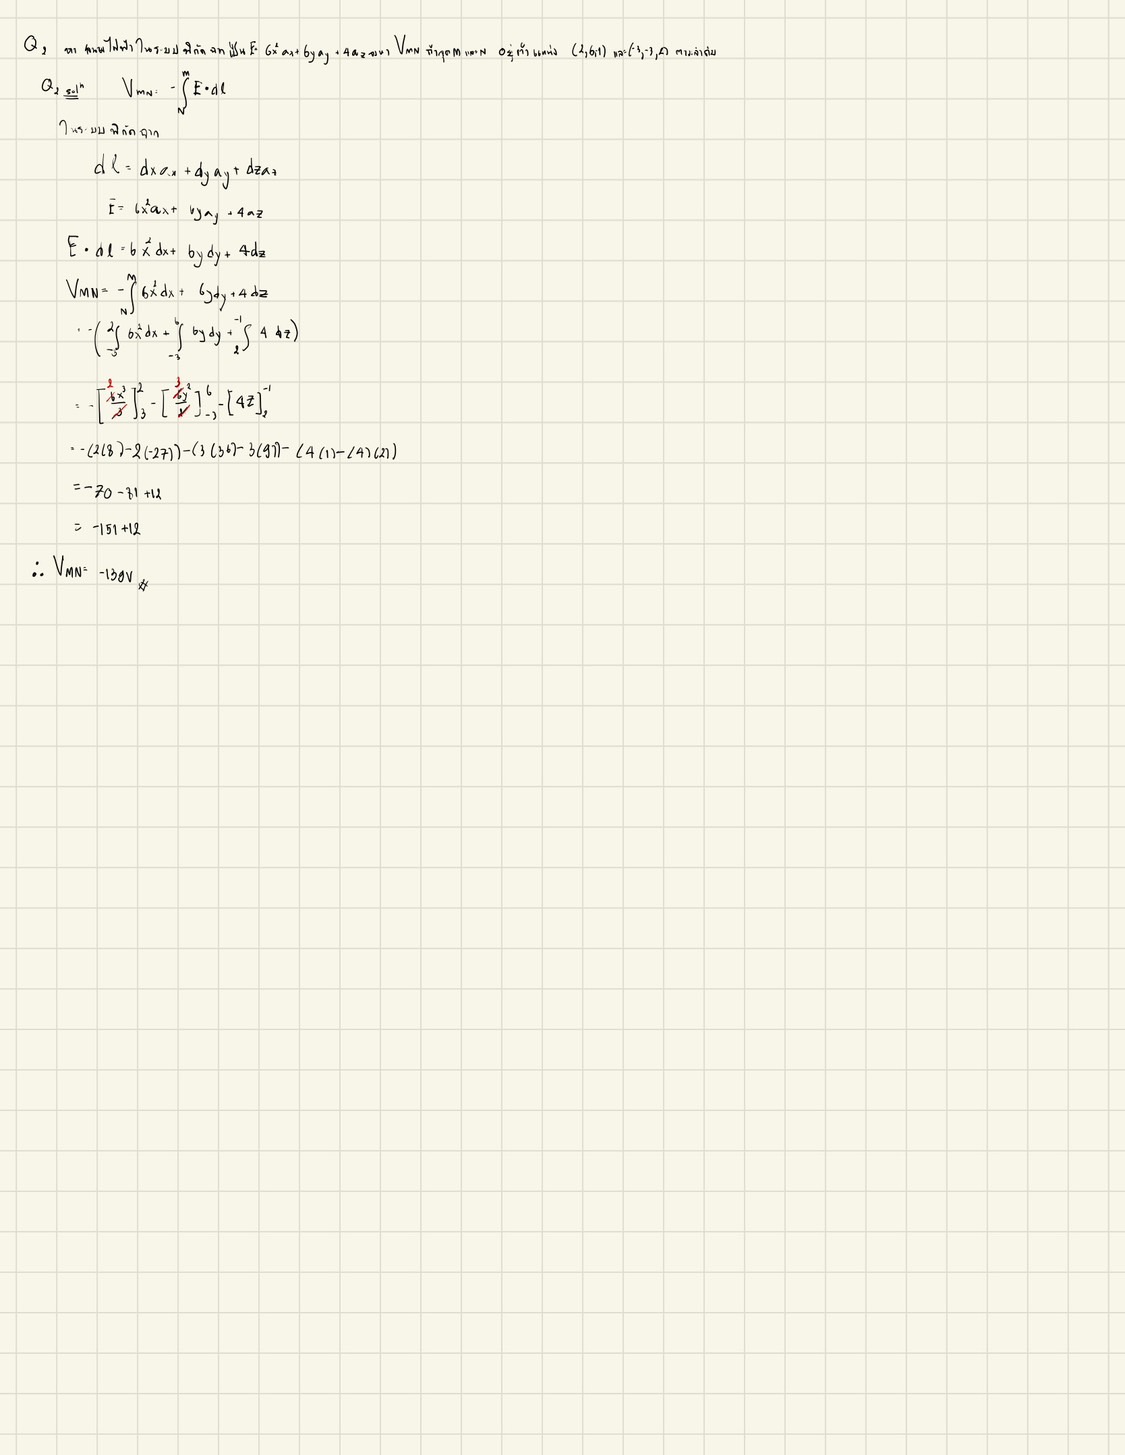 Q₂ ถ้า สนามไฟฟ้าในระบบพิกัดฉากเป็น E = 6x²ax + 6yay + 4az จงหา VMN ถ้าจุด M และ N อยู่ที่ตำแหน่ง (2,6,1) และ (-3,-3,2) ตามลำดับ
Q₂ solⁿ VMN = -∫ₙᴹ E•dl
ในระบบพิกัดฉาก
dl = dxax + dyay + dzaz
Ē = 6x²ax + 6yay + 4az
E•dl = 6x²dx + 6ydy + 4dz
VMN = -∫ₙᴹ 6x²dx + 6ydy + 4dz
= -(∫₋₃² 6x²dx + ∫₋₃⁶ 6ydy + ∫₂⁻¹ 4dz)
= -[2 6x³/3]₃² - [3 6y²/2]₋₃⁶ - [4z]₂⁻¹
= -(2(8)-2(-27))-(3(36)-3(9))-(4(1)-(4)(2))
= -70 -81 +12
= -151+12
∴ VMN = -139V #